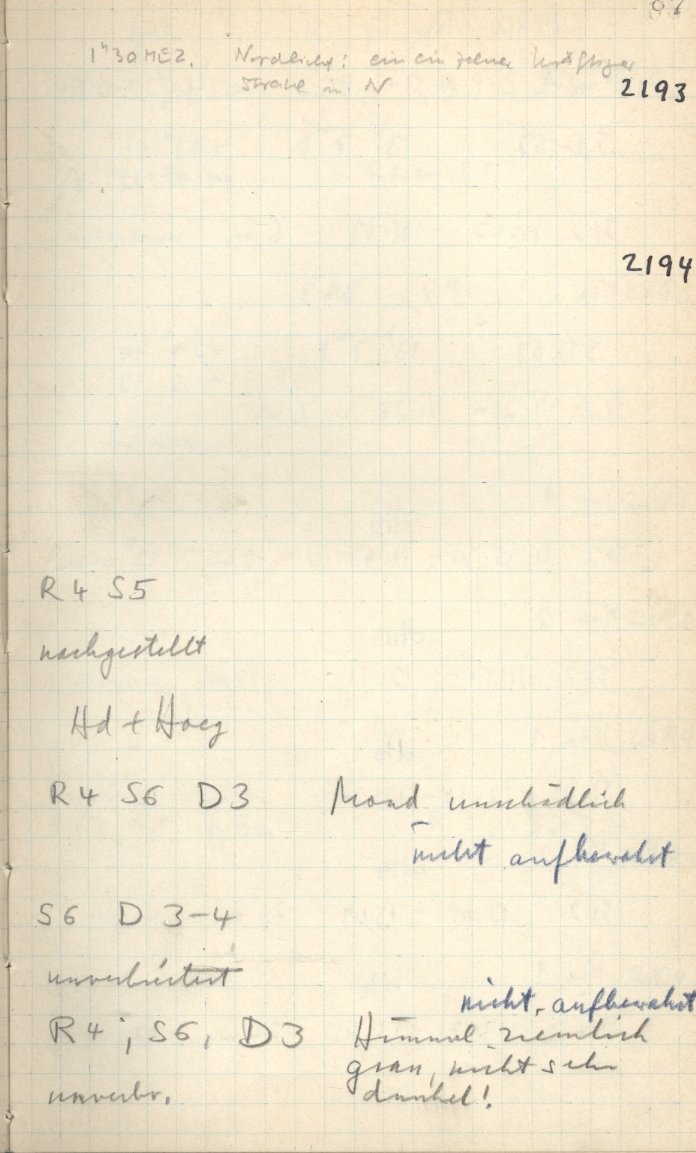 1ʰ30 MEZ. Nordlicht: ein einzelner kräftiger
Strahl in N
2193
2194
R4 S5
nachgestellt
Hd + Haeg
R4 S6 D3 Mond unschädlich
nicht aufbewahrt
S6 D 3-4
nicht aufbewahrt
R4, S6, D3 Himmel ziemlich
grau, nicht sehr
unverbr. dunkel!